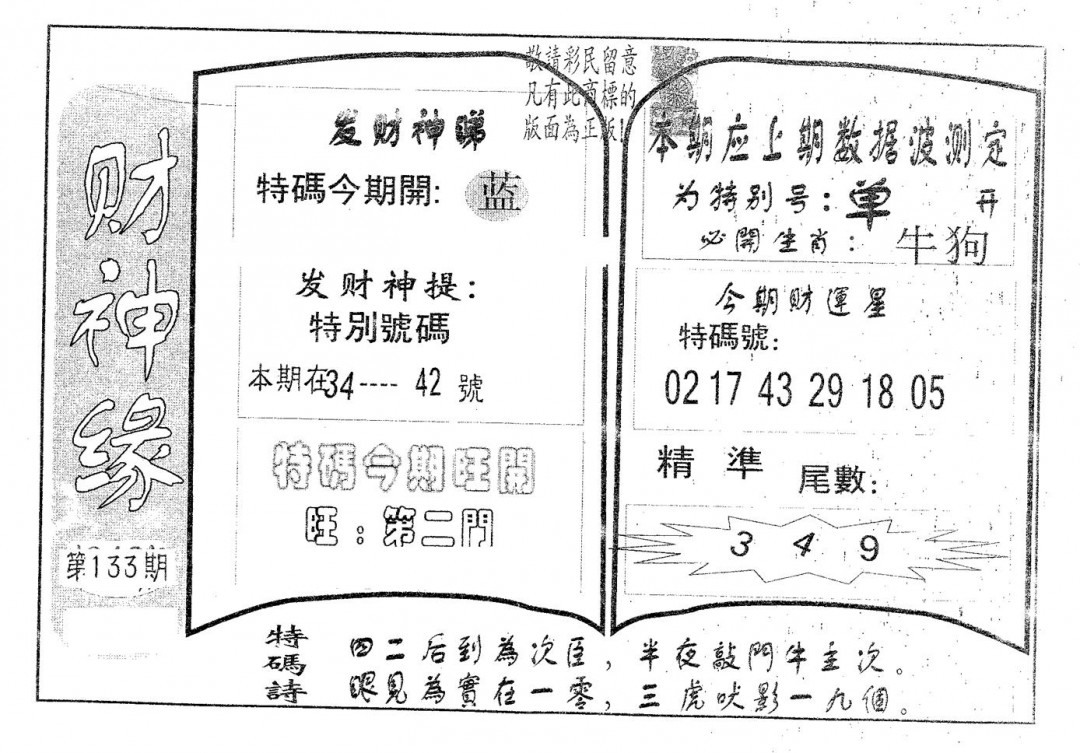 财神缘
第133期
敬請彩民留意
凡有此商標的
版面為正版!
发财神睇
特碼今期開: 蓝
发财神提:
特別號碼
本期在34---- 42 號
特碼今期旺開
旺:第二門
本期应上期数据波测定
为特别号:单 开
必開生肖: 牛狗
今期財運星
特碼號:
02 17 43 29 18 05
精準 尾數:
3 4 9
特碼詩
四二后到為次臣,半夜敲門牛主次。
眼見為實在一零,三虎吠影一九個。